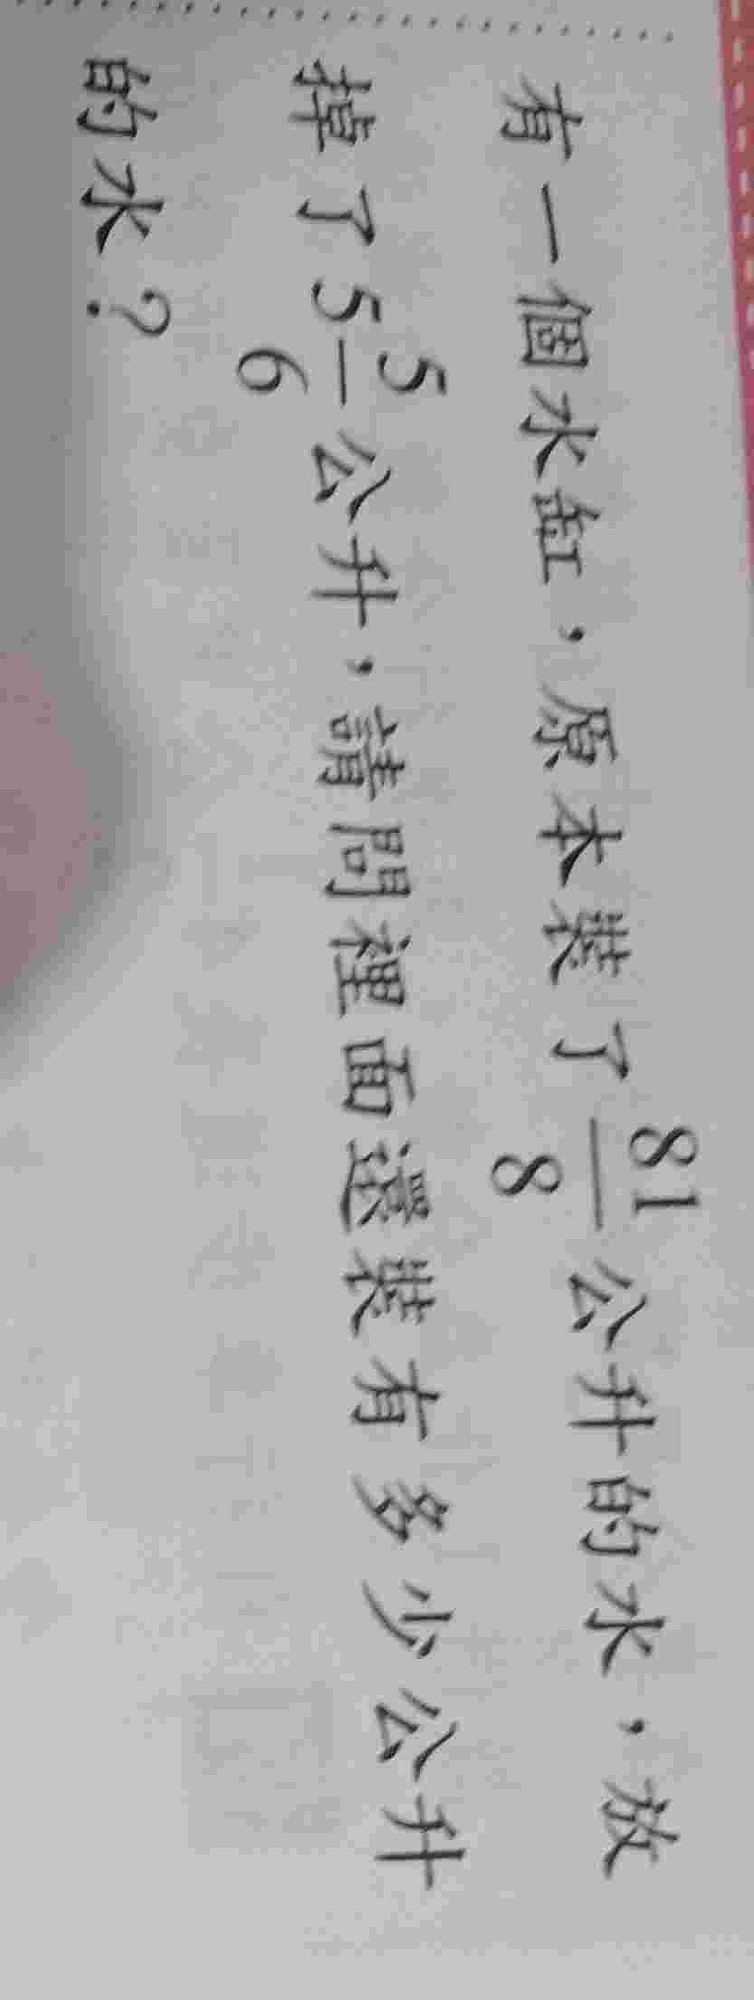 有一個水缸，原本裝了81/8公升的水，放
掉了5 5/6公升，請問裡面還裝有多少公升
的水？